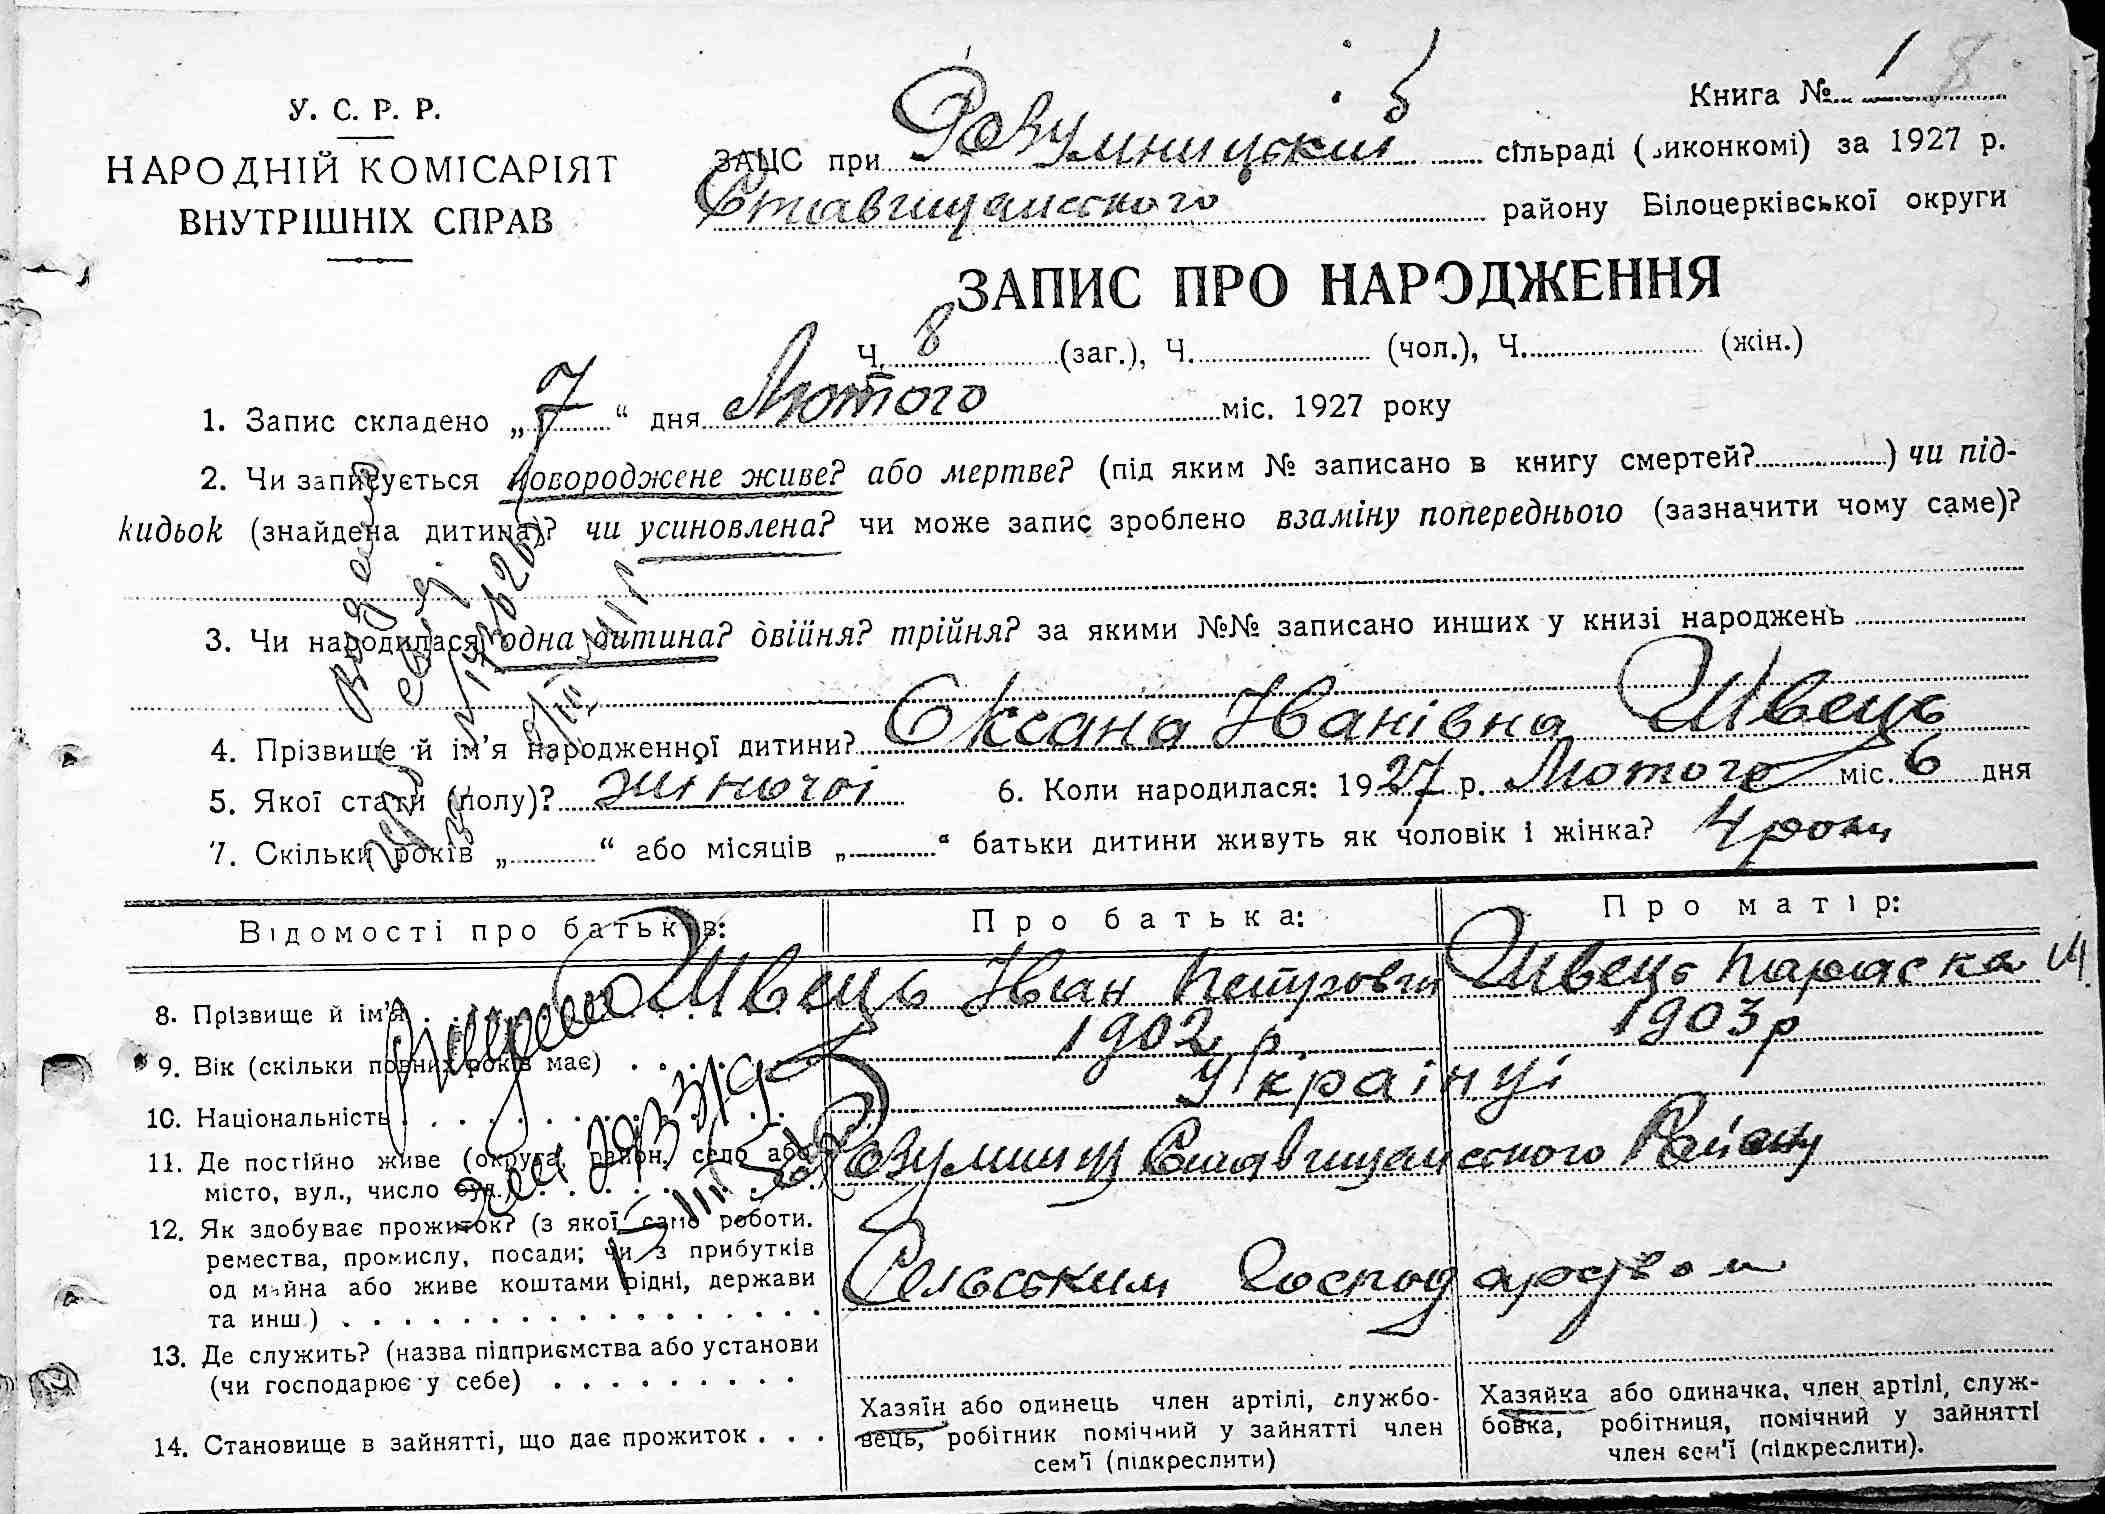 Книга № 1 8
У. С. Р. Р.
НАРОДНІЙ КОМІСАРІЯТ
ВНУТРІШНІХ СПРАВ
ЗАЦС при Розумницькій сільраді (виконкомі) за 1927 р.
Ставищанського району Білоцерківської округи
ЗАПИС ПРО НАРОДЖЕННЯ
Ч. 8 (заг.), Ч. (чол.), Ч. (жін.)
1. Запис складено „7“ дня Лютого міс. 1927 року
2. Чи записується новороджене живе? або мертве? (під яким № записано в книгу смертей? ) чи під-
кидьок (знайдена дитина)? чи усиновлена? чи може запис зроблено взаміну попереднього (зазначити чому саме)?
3. Чи народилася одна дитина? двійня? трійня? за якими №№ записано инших у книзі народжень
4. Прізвище й ім’я народженної дитини? Оксана Іванівна Швець
5. Якої стати (полу)? жіночої 6. Коли народилася: 1927 р. Лютого міс. 6 дня
7. Скільки років „ “ або місяців „ “ батьки дитини живуть як чоловік і жінка? 4 роки
Відомості про батьків: Про батька: Про матір:
8. Прізвище й ім’я Швець Іван Петрович Швець Параска
9. Вік (скільки повних років має) 1902 р. 1903 р
10. Національність Українці
11. Де постійно живе (округа, район, село або
місто, вул., число буд.) Розумниці Ставищанського Району
12. Як здобуває прожиток? (з якої само роботи.
ремества, промислу, посади; чи з прибутків
од майна або живе коштами рідні, держави
та инш.) Сельським Господарством
13. Де служить? (назва підприємства або установи
(чи господарює у себе)
14. Становище в зайнятті, що дає прожиток . . .
Хазяїн або одинець член артілі, службо-
вець, робітник помічний у зайнятті член
сем’ї (підкреслити)
Хазяйка або одиначка, член артілі, служ-
бовка, робітниця, помічний у зайнятті
член сем’ї (підкреслити).